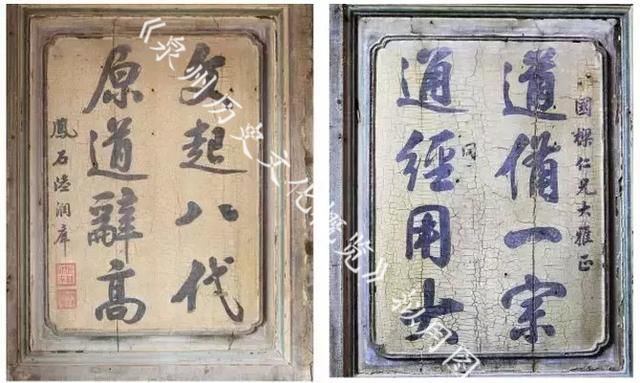 國樑仁兄大雅正
道備一宗
通經用
同
文起八代
原道辭高
鳳石陸潤庠
《泉州历史文化概览》